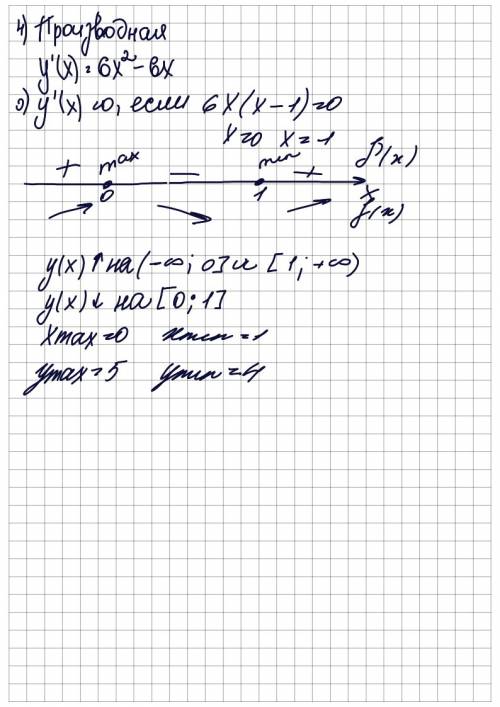 4) Производная
y'(x) = 6x² - 6x
5) y'(x) = 0, если 6x(x-1)=0
x=0 x=1
+ max − min + f'(x)
0 1 x
f(x)
y(x)↑ на (-∞; 0] и [1; +∞)
y(x)↓ на [0; 1]
Xmax=0 xmin=1
ymax=5 ymin=4